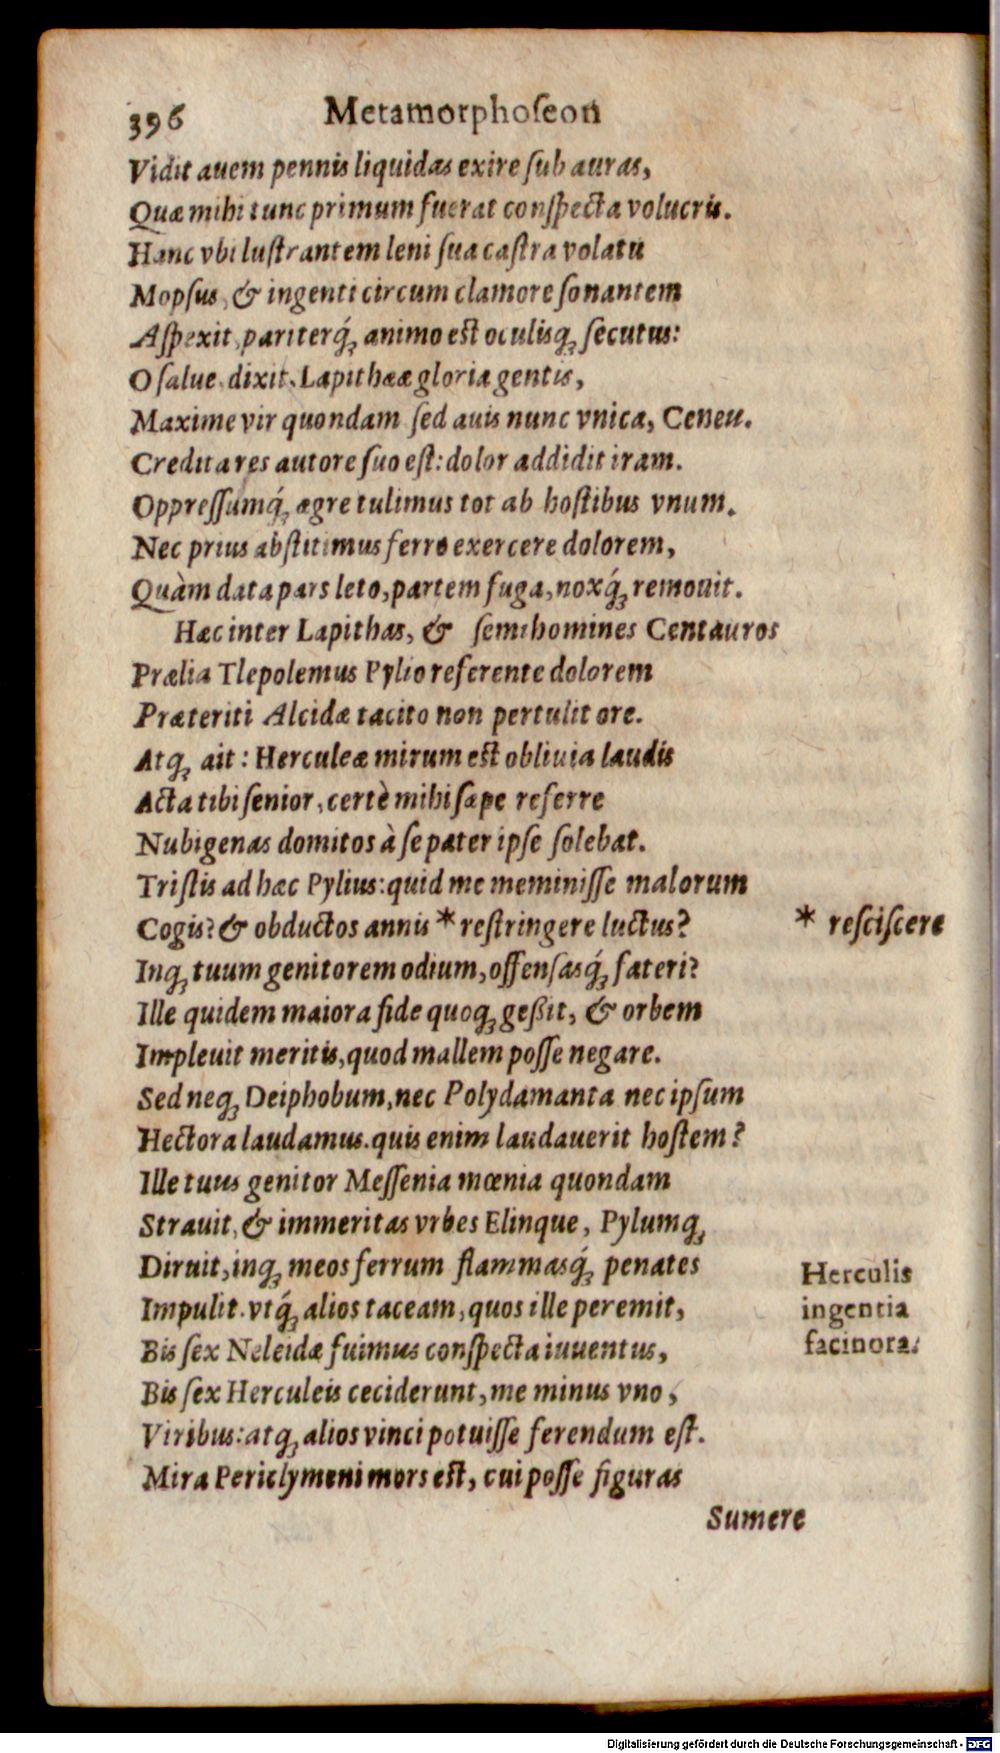 396 Metamorphoſeon
Vidit auem pennis liquidas exire ſub auras,
Quæ mihi tunc primum fuerat conſpecta volucris.
Hanc vbi luſtrantem leni ſua caſtra volatu
Mopſus, & ingenti circum clamore ſonantem
Aſpexit, pariterq́ꝫ animo est oculisqꝫ ſecutus:
O ſalue, dixit, Lapithææ gloria gentis,
Maxime vir quondam ſed auis nunc vnica, Ceneu.
Credita res autore ſuo eſt: dolor addidit iram.
Oppreſſumq́ꝫ ægre tulimus tot ab hoſtibus vnum.
Nec prius abſtitimus ferro exercere dolorem,
Quàm data pars leto, partem fuga, noxq́ꝫ remouit.
Hæc inter Lapithas, & ſemihomines Centauros
Prælia Tlepolemus Pylio referente dolorem
Præteriti Alcidæ tacito non pertulit ore.
Atqꝫ ait: Herculeæ mirum est obliuia laudis
Acta tibi ſenior, certè mihi ſæpe referre
Nubigenas domitos à ſe pater ipſe ſolebat.
Triſtis ad hæc Pylius: quid me meminiſſe malorum
Cogis? & obductos annis * reſtringere luctus?
* reſciſcere
Inqꝫ tuum genitorem odium, offenſasq́ꝫ fateri?
Ille quidem maiora fide quoqꝫ geßit, & orbem
Impleuit meritis, quod mallem poſſe negare.
Sed neqꝫ Deiphobum, nec Polydamanta nec ipſum
Hectora laudamus. quis enim laudauerit hoſtem?
Ille tuus genitor Meſſenia mœnia quondam
Strauit, & immeritas vrbes Elinque, Pylumqꝫ
Diruit, inqꝫ meos ferrum flammasq́ꝫ penates
Impulit. vtq́ꝫ alios taceam, quos ille peremit,
Herculis
ingentia
facinora.
Bis ſex Neleidæ fuimus conſpecta iuuentus,
Bis ſex Herculeis ceciderunt, me minus vno,
Viribus: atqꝫ alios vinci potuiſſe ferendum eſt.
Mira Periclymeni mors est, cui poſſe figuras
Sumere
Digitalisierung gefördert durch die Deutsche Forschungsgemeinschaft - DFG